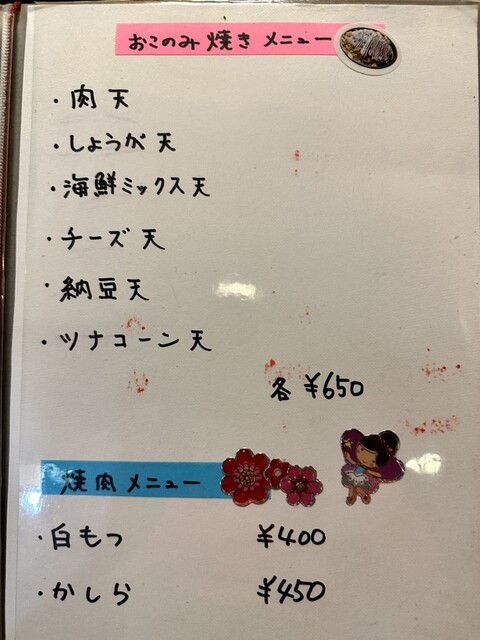 おこのみ焼きメニュー
・肉天
・しょうが天
・海鮮ミックス天
・チーズ天
・納豆天
・ツナコーン天
各 ¥650
焼肉メニュー
・白もつ ¥400
・かしら ¥450